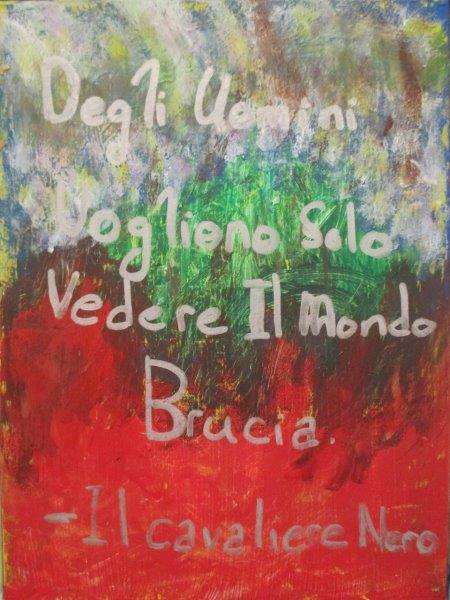 Degli Uomini
Vogliono Solo
Vedere Il Mondo
Brucia.
- Il cavaliere Nero